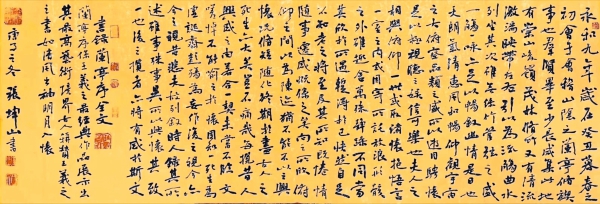 永和九年歲在癸丑暮春之
初會于會稽山陰之蘭亭脩禊
事也群賢畢至少長咸集此地
有崇山峻嶺茂林脩竹又有清流
激湍映帶左右引以為流觴曲水
列坐其次雖無絲竹管弦之盛
一觴一詠亦足以暢敘幽情是日也
天朗氣清惠風和暢仰觀宇宙
之大俯察品類之盛所以遊目騁懷
足以極視聽之娛信可樂也夫人之
相與俯仰一世或取諸懷抱悟言
一室之內或因寄所託放浪形骸
之外雖趣舍萬殊靜躁不同當
其欣於所遇暫得於己怏然自足不
知老之將至及其所之既倦情
隨事遷感慨係之矣向之所欣俛
仰之間以為陳迹猶不能不以之興
懷況脩短隨化終期於盡古人云
死生亦大矣豈不痛哉每攬昔人
興感之由若合一契未嘗不臨文
嗟悼不能喻之於懷固知一死生為
虛誕齊彭殤為妄作後之視今亦由
今之視昔悲夫故列敘時人錄其所
述雖世殊事異所以興懷其致
一也後之攬者亦將有感於斯文
書錄蘭亭序全文
蘭亭序係王羲之最經典作品展示出
其最高藝術境界王羲之
之書如清風出袖明月入懷
庚子之冬 張坤山書